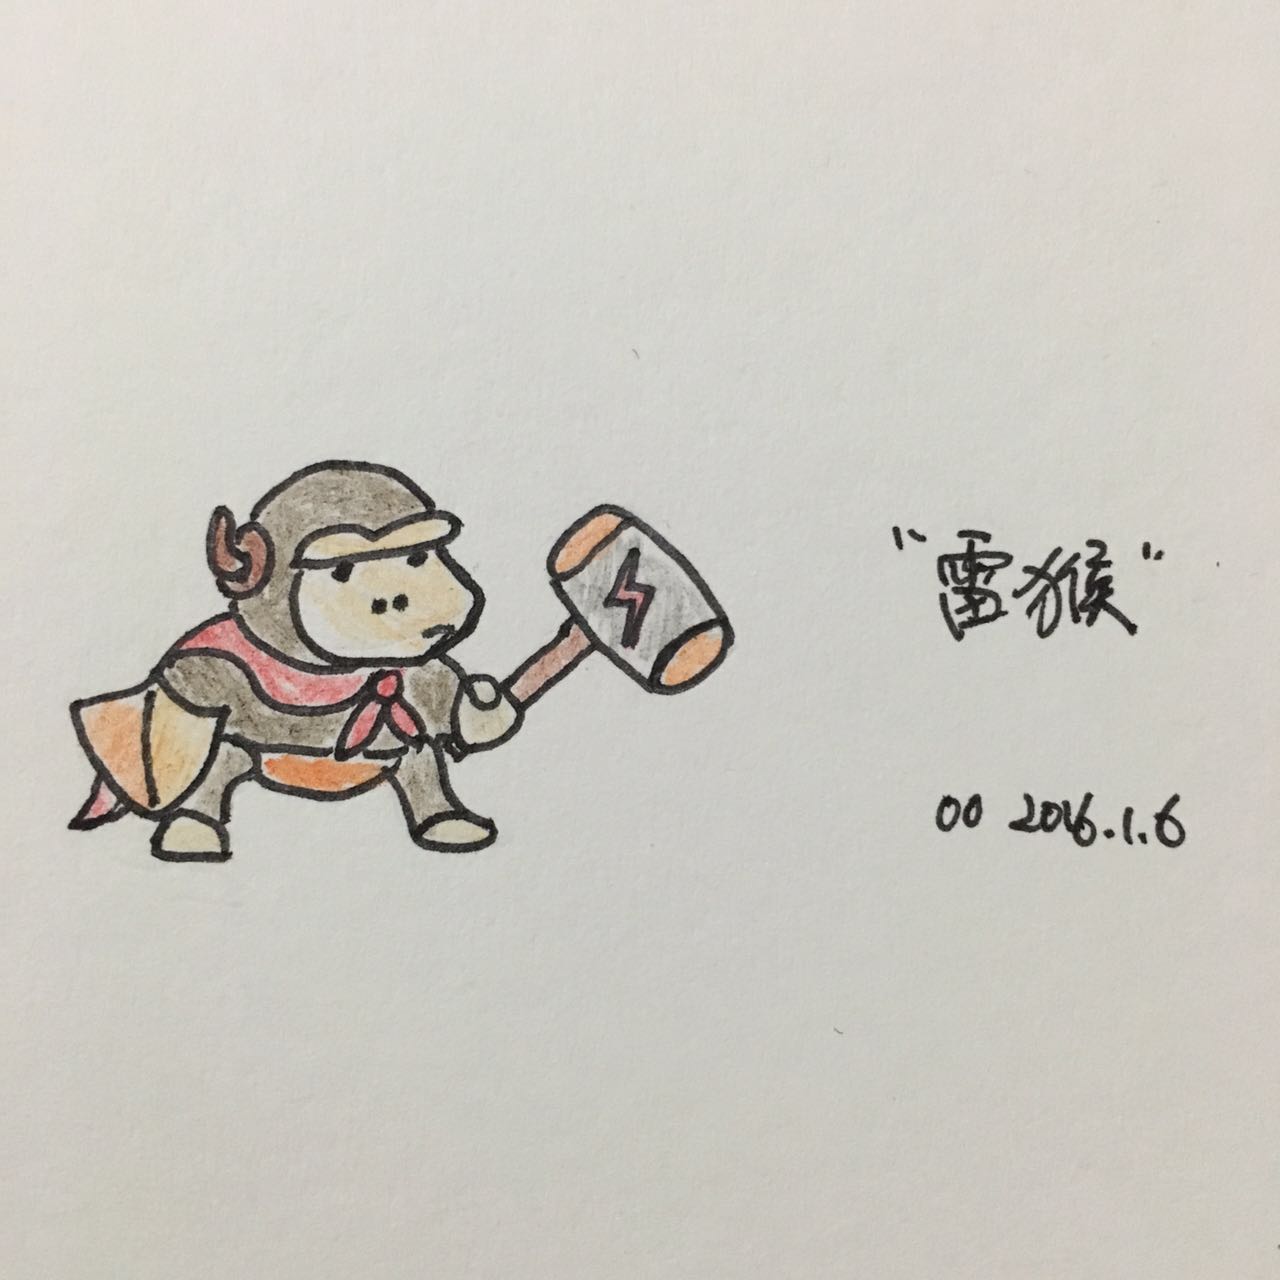 “雷猴”
00 2016.1.6